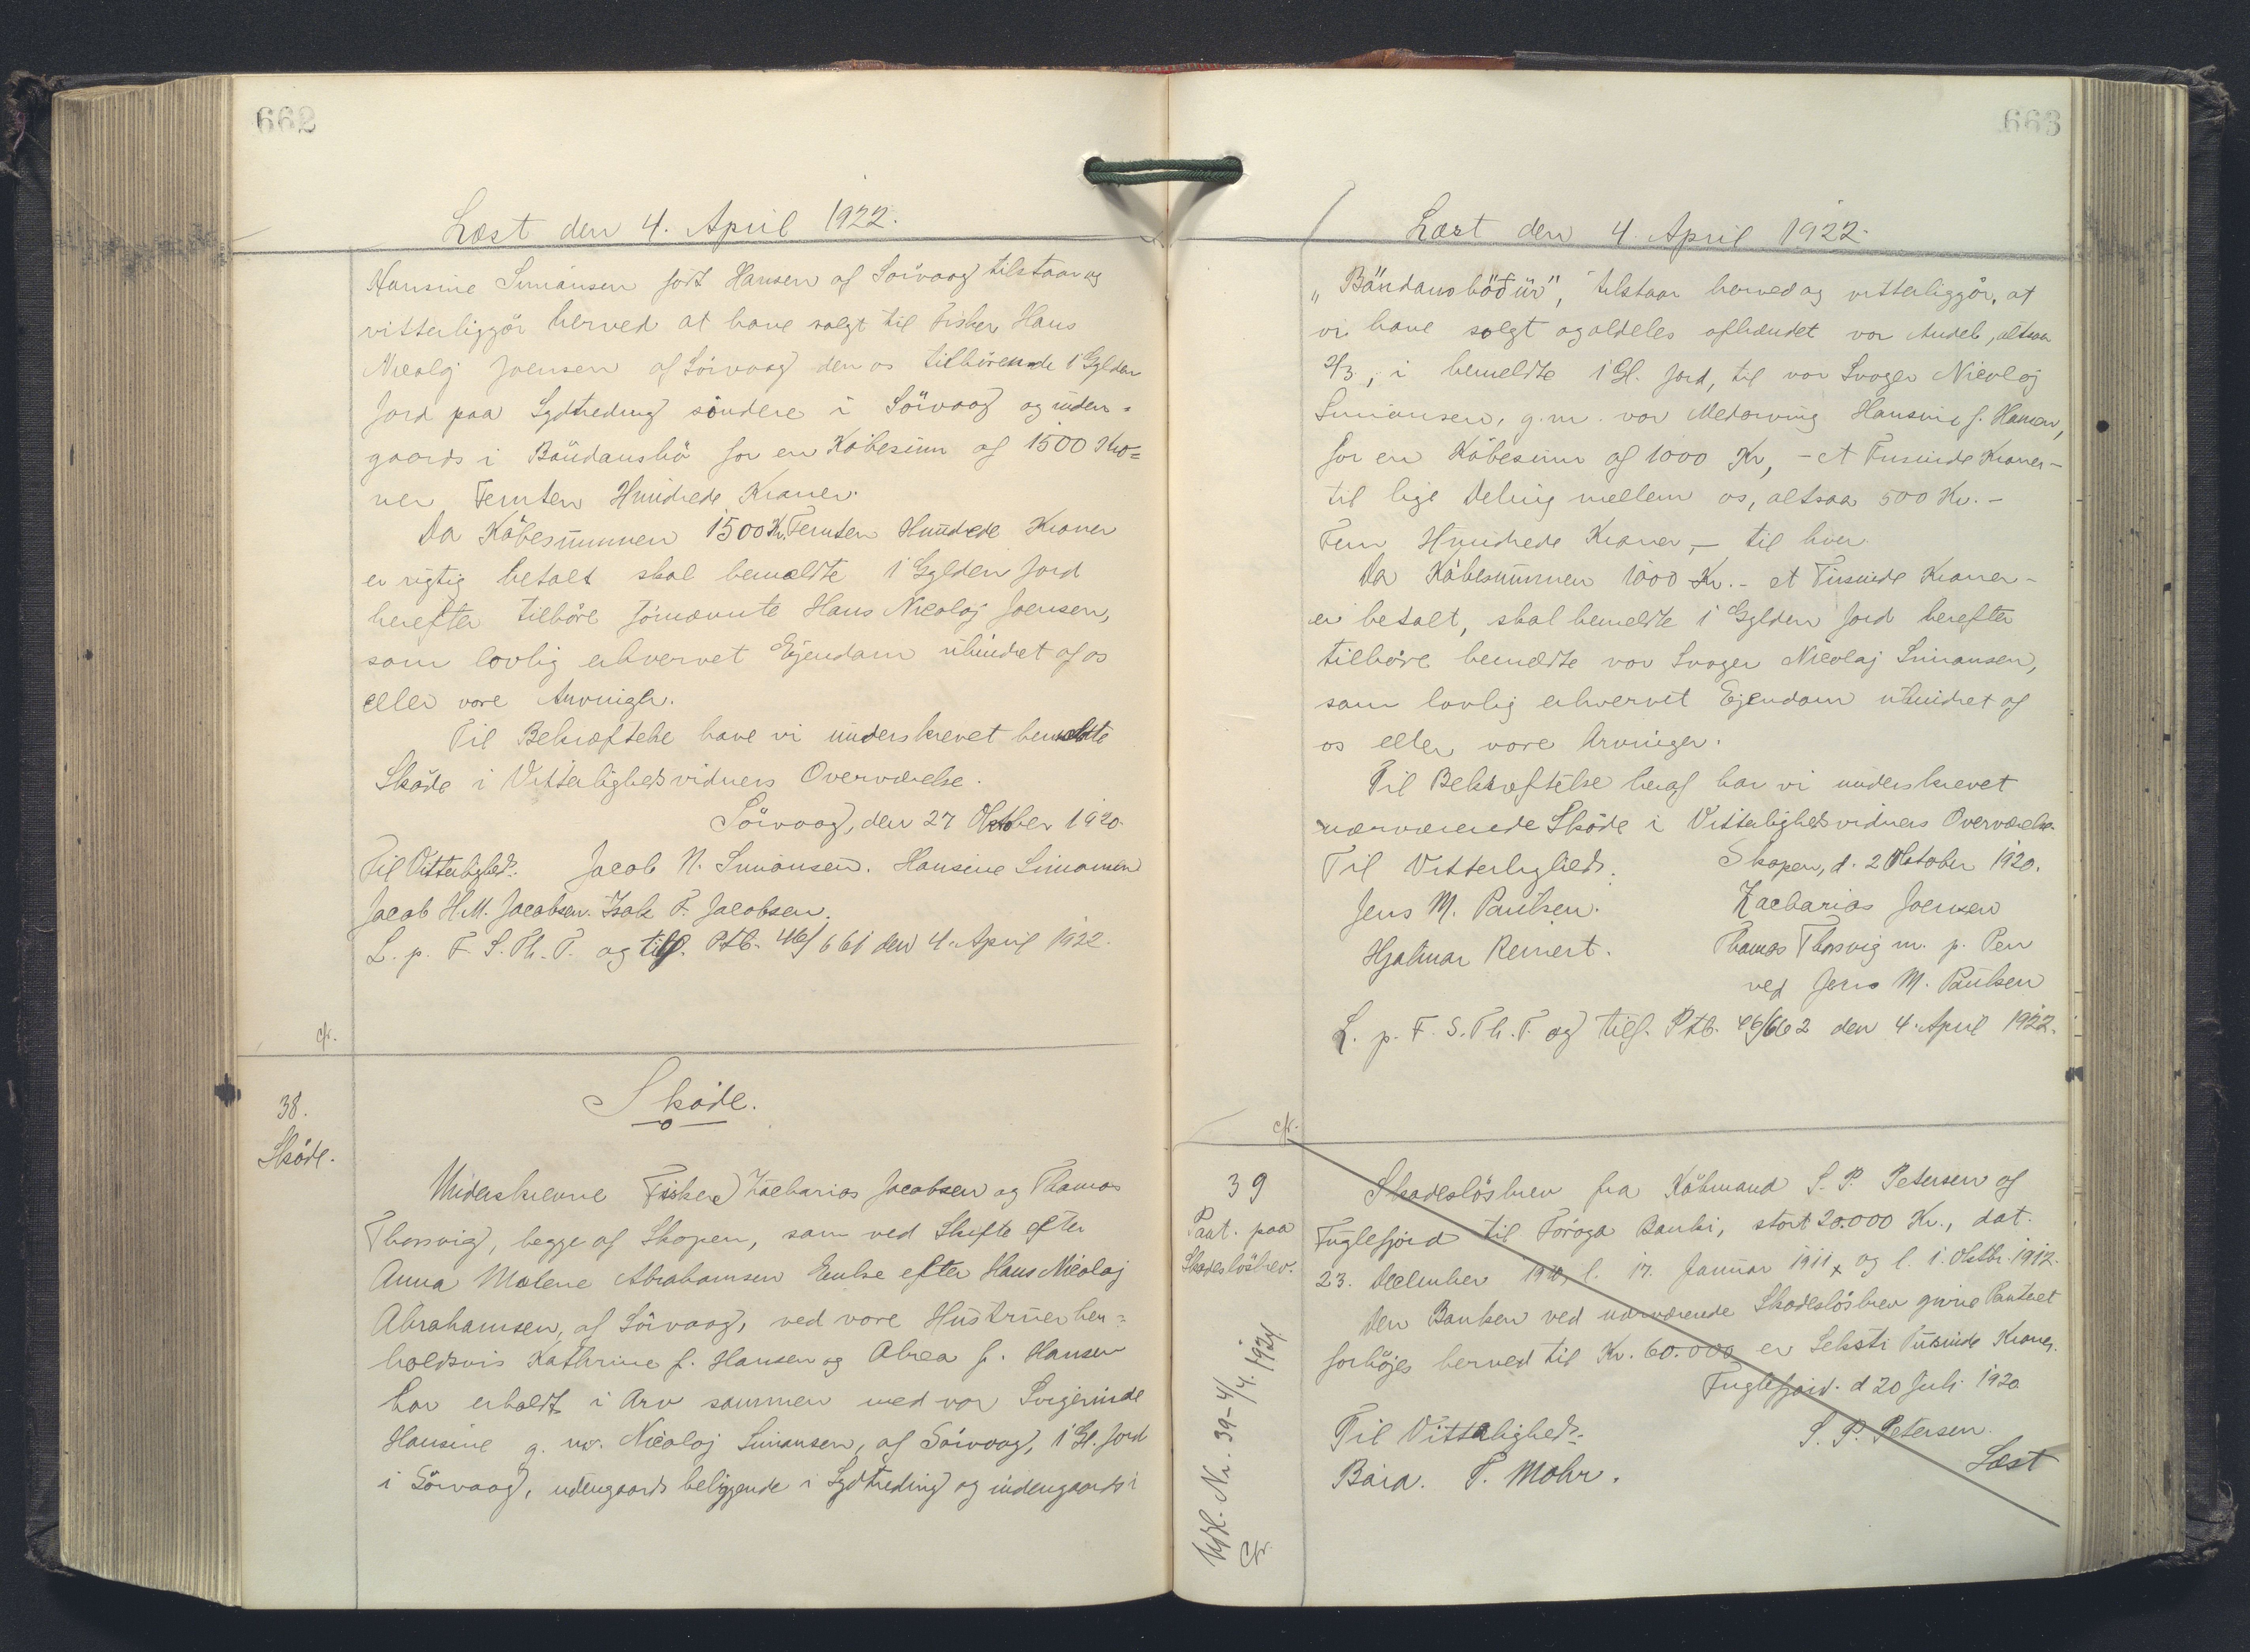 662
Læst den 4. April 1922.
Hansine Simonsen født Hansen af Sörvaag tilstaar og
vitterliggör herved at have solgt til Fisker Hans
Nicolaj Joensen af Sörvaag den os tilhörende 1 Gylden
Jord paa Sydtreding söndere i Sörvaag og inden-
gaards i Böudansbö for en Köbesum af 1500 Kro-
ner Femten Hundrede Kroner.
Da Köbesummen 1500 Kr. Femten Hundrede Kroner
er rigtig betalt skal bemeldte 1 Gylden Jord
herefter tilhöre förnævnte Hans Nicolaj Joensen,
som lovlig erhvervet Ejendom uhindret af os
eller vore Arvinger.
Til Bekræftelse have vi underskrevet bemeldte
Sköde i Vitterlighedsvidners Overværelse.
Sörvaag, den 27 Oktober 1920.
Til Vitterlighed: Jacob N. Simonsen. Hansine Simonsen
Jacob H. M. Jacobsen. Isak F. Jacobsen.
L. p. F. S. Th. T. og tilf. Ptb. 46/661 den 4. April 1922.
cfr.
38.
Sköde.
Sköde.
Underskrevne Fiskere Zacharias Jacobsen og Thomas
Thorsvig, begge af Skopen, som ved Skifte efter
Anna Malene Abrahamsen Enke efter Hans Nicolaj
Abrahamsen, af Sörvaag, ved vore Hustruer hen-
holdsvis Kathrine f. Hansen og Abrea f. Hansen
har erholdt i Arv sammen med vor Svigerinde
Hansine g. m. Nicolaj Simonsen, af Sörvaag, 1 Gl. Jord
i Sörvaag, udengaards beliggende i Sydtreding og indengaards i
663
Læst den 4. April 1922.
„Böndansböður", tilstaar herved og vitterliggör, at
vi have solgt og aldeles afhændet vor Andel, altsaa
2/3, i bemeldte 1 Gl. Jord, til vor Svoger Nicolaj
Simonsen, g. m. vor Medarving Hansine f. Hansen,
for en Köbesum af 1000 Kr, - et Tusinde Kroner -
til lige Deling mellem os, altsaa 500 Kr. -
Fem Hundrede Kroner, - til hver.
Da Köbesummen 1000 Kr. - et Tusinde Kroner -
er betalt, skal bemeldte 1 Gylden Jord herefter
tilhöre bemeldte vor Svoger Nicolaj Simonsen,
som lovlig erhvervet Ejendom uhindret af
os eller vore Arvinger.
Til Bekræftelse heraf har vi underskrevet
nærværende Sköde i Vitterlighedsvidners Overværelse.
Til Vitterlighed: Skopen, d. 2 Oktober 1920.
Jens M. Paulsen. Zacharias Joensen
Hjalmar Reinert. Thomas Thorsvig m. p. Pen
ved Jens M. Paulsen
L. p. F. S. Th. T. og tilf. Ptb. 46/662 den 4. April 1922.
cfr.
39
Paat. paa
Skadeslösbrev.
Skadeslösbrev fra Köbmand S. P. Petersen af
Fuglefjord til Föroya Banki, stort 20.000 Kr., dat.
23. December 1910, l. 17. Januar 1911 x og l. 1. Oktbr. 1912.
Den Banken ved nærværende Skadeslösbrev givne Panteret
forhöjes herved til Kr. 60.000 er Seksti Tusinde Kroner.
Fuglefjord. d 20 Juli 1920
Til Vitterlighed: S. P. Petersen.
Baia. T. Mohr. Læst
Udsl. Nr. 39 - 4/4. 1924
Cfr.